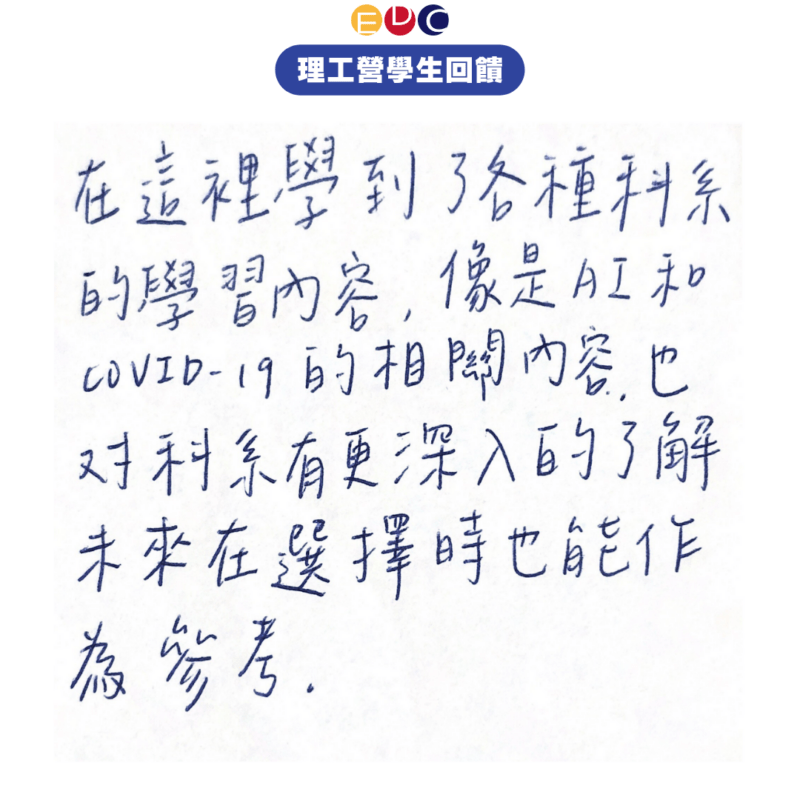 EDC
理工營學生回饋
在這裡學到了各種科系
的學習內容,像是AI和
COVID-19的相關內容,也
对科系有更深入的了解
未來在選擇時也能作
為參考.